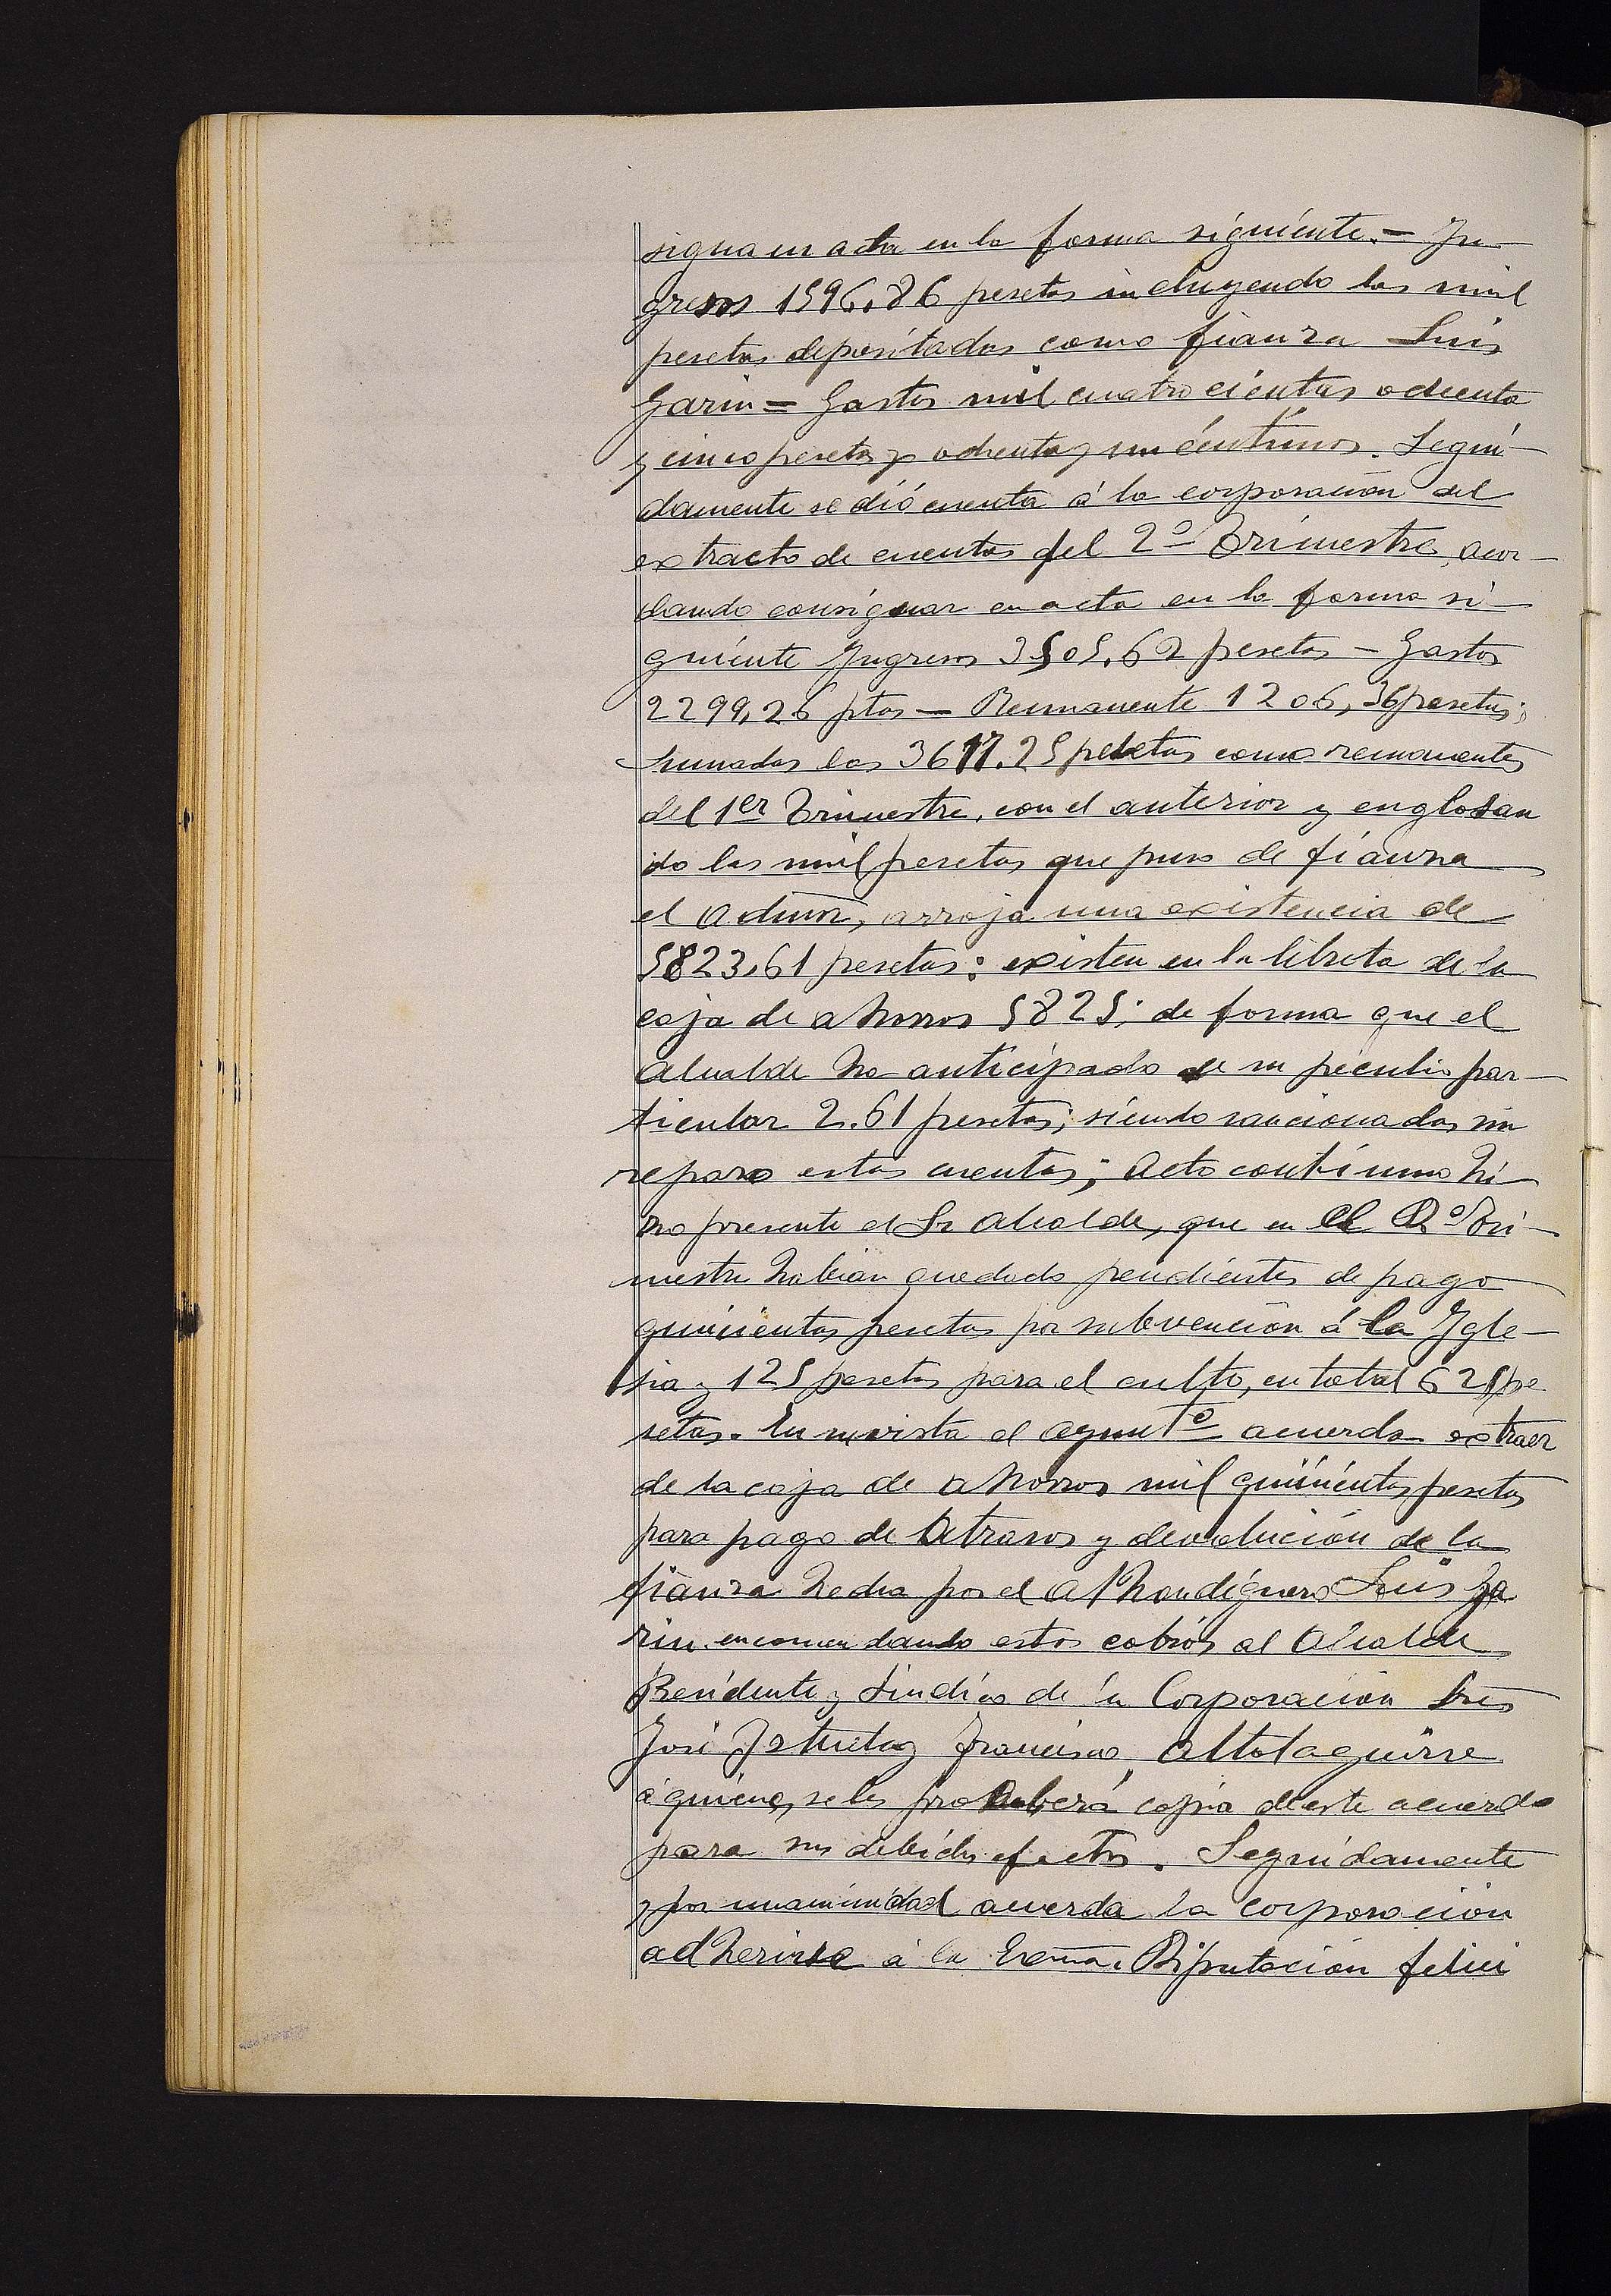 signa en acta en la forma siguiente.= In
gresos 1596.86 pesetas incluyendo las mil
pesetas depositadas como fianza Luis
Garin = Gastos mil cuatrocientas ochenta
y cinco pesetas y ochenta y un céntimos. Segui-
damente se dió cuenta á la corporacion del
extracto de cuentas del 2º Trimestre, acor-
dando consignar en acta en la forma si-
guiente Ingresos 3505.62 pesetas = Gastos
2299,26 ptas — Remanente 1206,36 pesetas;
sumadas las 3617.25 pesetas como remanentes
del 1er Trimestre, con el anterior y englosan
do las mil pesetas que puso de fianza
el Admor, arroja una existencia de
5823,61 pesetas: existen en la libreta de la
caja de ahorros 5825; de forma que el
Alcalde ha anticipado de su peculio par-
ticular 2.61 pesetas; siendo sancionadas sin
reparo estas cuentas; Acto contínuo hi
zo presente el Sr Alcalde, que en el 2º Tri-
mestre habian quedado pendientes de pago
quinientas pesetas por subvencion á la Igle-
sia y 125 pesetas para el culto, en total 625 pe
setas. En su vista el Ayuntº acuerda extraer
de la caja de ahorros mil quinientas pesetas
para pago de Atrasos y devolución de la
fianza hecha por el Alhondiguero Luis Ga
rin encomendando estos cobros al Alcalde
Presidente y Sindico de la Corporacion Sres
José Iztueta y Francisco Altolaguirre
á quienes, se les proveherá copia de este acuerdo
para sus debidos efectos. Seguidamente
y por unanimidad acuerda la corporacion
adherirse á la Excma. Diputacion felici